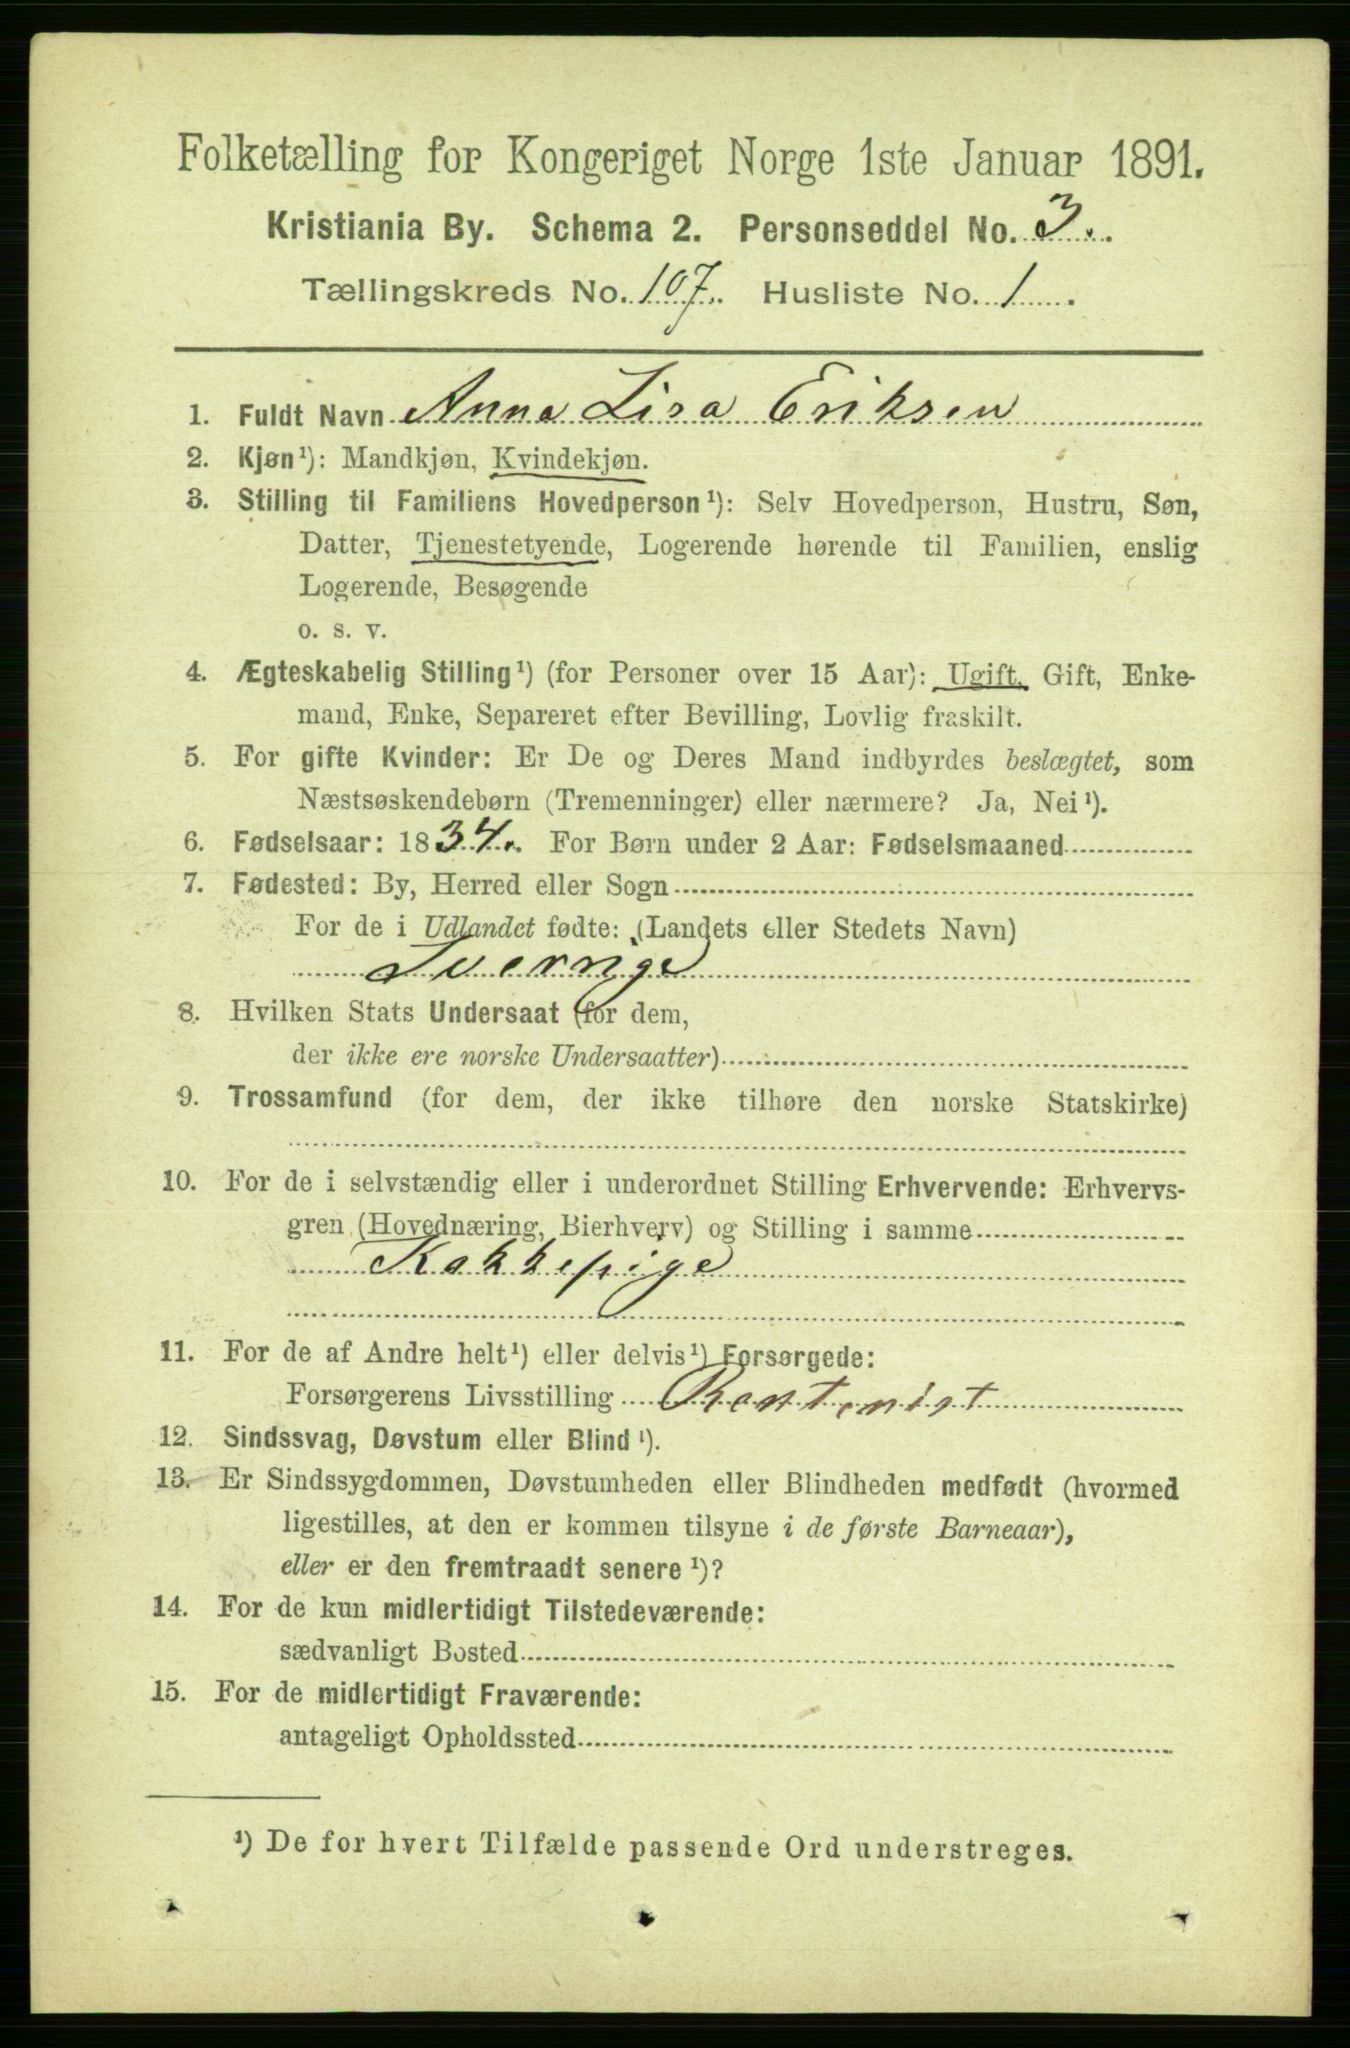 Folketælling for Kongeriget Norge 1ste Januar 1891.
Kristiania By. Schema 2. Personseddel No. 3.
Tællingskreds No. 107. Husliste No. 1.
1. Fuldt Navn Anna Lisa Eriksen
2. Kjøn¹): Mandkjøn, Kvindekjøn.
3. Stilling til Familiens Hovedperson¹): Selv Hovedperson, Hustru, Søn,
Datter, Tjenestetyende, Logerende hørende til Familien, enslig
Logerende, Besøgende
o. s. v.
4. Ægteskabelig Stilling¹) (for Personer over 15 Aar): Ugift, Gift, Enke-
mand, Enke, Separeret efter Bevilling, Lovlig fraskilt.
5. For gifte Kvinder: Er De og Deres Mand indbyrdes beslægtet, som
Næstsøskendebørn (Tremenninger) eller nærmere? Ja, Nei¹).
6. Fødselsaar: 1834. For Børn under 2 Aar: Fødselsmaaned
7. Fødested: By, Herred eller Sogn
For de i Udlandet fødte: (Landets eller Stedets Navn)
Sverrige
8. Hvilken Stats Undersaat (for dem,
der ikke ere norske Undersaatter)
9. Trossamfund (for dem, der ikke tilhøre den norske Statskirke)
10. For de i selvstændig eller i underordnet Stilling Erhvervende: Erhvervs-
gren (Hovednæring, Bierhverv) og Stilling i samme
Kokkepige
11. For de af Andre helt¹) eller delvis¹) Forsørgede:
Forsørgerens Livsstilling Rentenist
12. Sindssvag, Døvstum eller Blind¹).
13. Er Sindssygdommen, Døvstumheden eller Blindheden medfødt (hvormed
ligestilles, at den er kommen tilsyne i de første Barneaar),
eller er den fremtraadt senere¹)?
14. For de kun midlertidigt Tilstedeværende:
sædvanligt Bosted
15. For de midlertidigt Fraværende:
antageligt Opholdssted
¹) De for hvert Tilfælde passende Ord understreges.